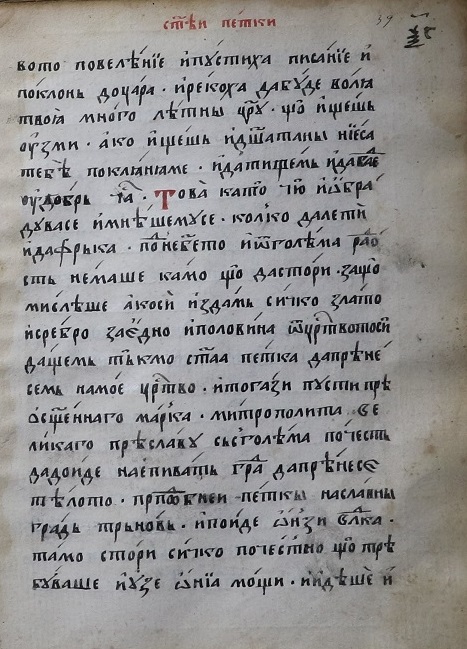 ст҃ѣи петки 39
вото повелѣнїе ипꙋстиха писанїе и
поклонь доцара · ирекоха дабꙋде волꙗ
твоꙗ много лѣтны цр҃ꙋ · що ищешь
оузми · ако ищешь
тебѣ покланꙗме ·
Това като чю иѡбра
дꙋвасе · колко далети
идафрыка · иѡтголѣма радо
сть немаше камо що дастори · защо
мислѣше акоси издамь сичко злато
исребро заедно иполовина ѿцр҃твотоси
дащемь тъкмо ст҃аа петка дапрѣне
семь намое цр҃тво · итогази пꙋсти прѣ
ѡсщеннаго марка · митрополита ве
ликаго прѣславꙋ сьсголѣма почесть
дадоиде наепивать гра҃ дапрѣнесе
тѣлото · петкы наславны
градь трьновь · ипоиде ѡнзи влⷣка ·
тамо стори сичко почестно що трѣ
бꙋваше иꙋзе ѡнїа мощи · иидѣше и